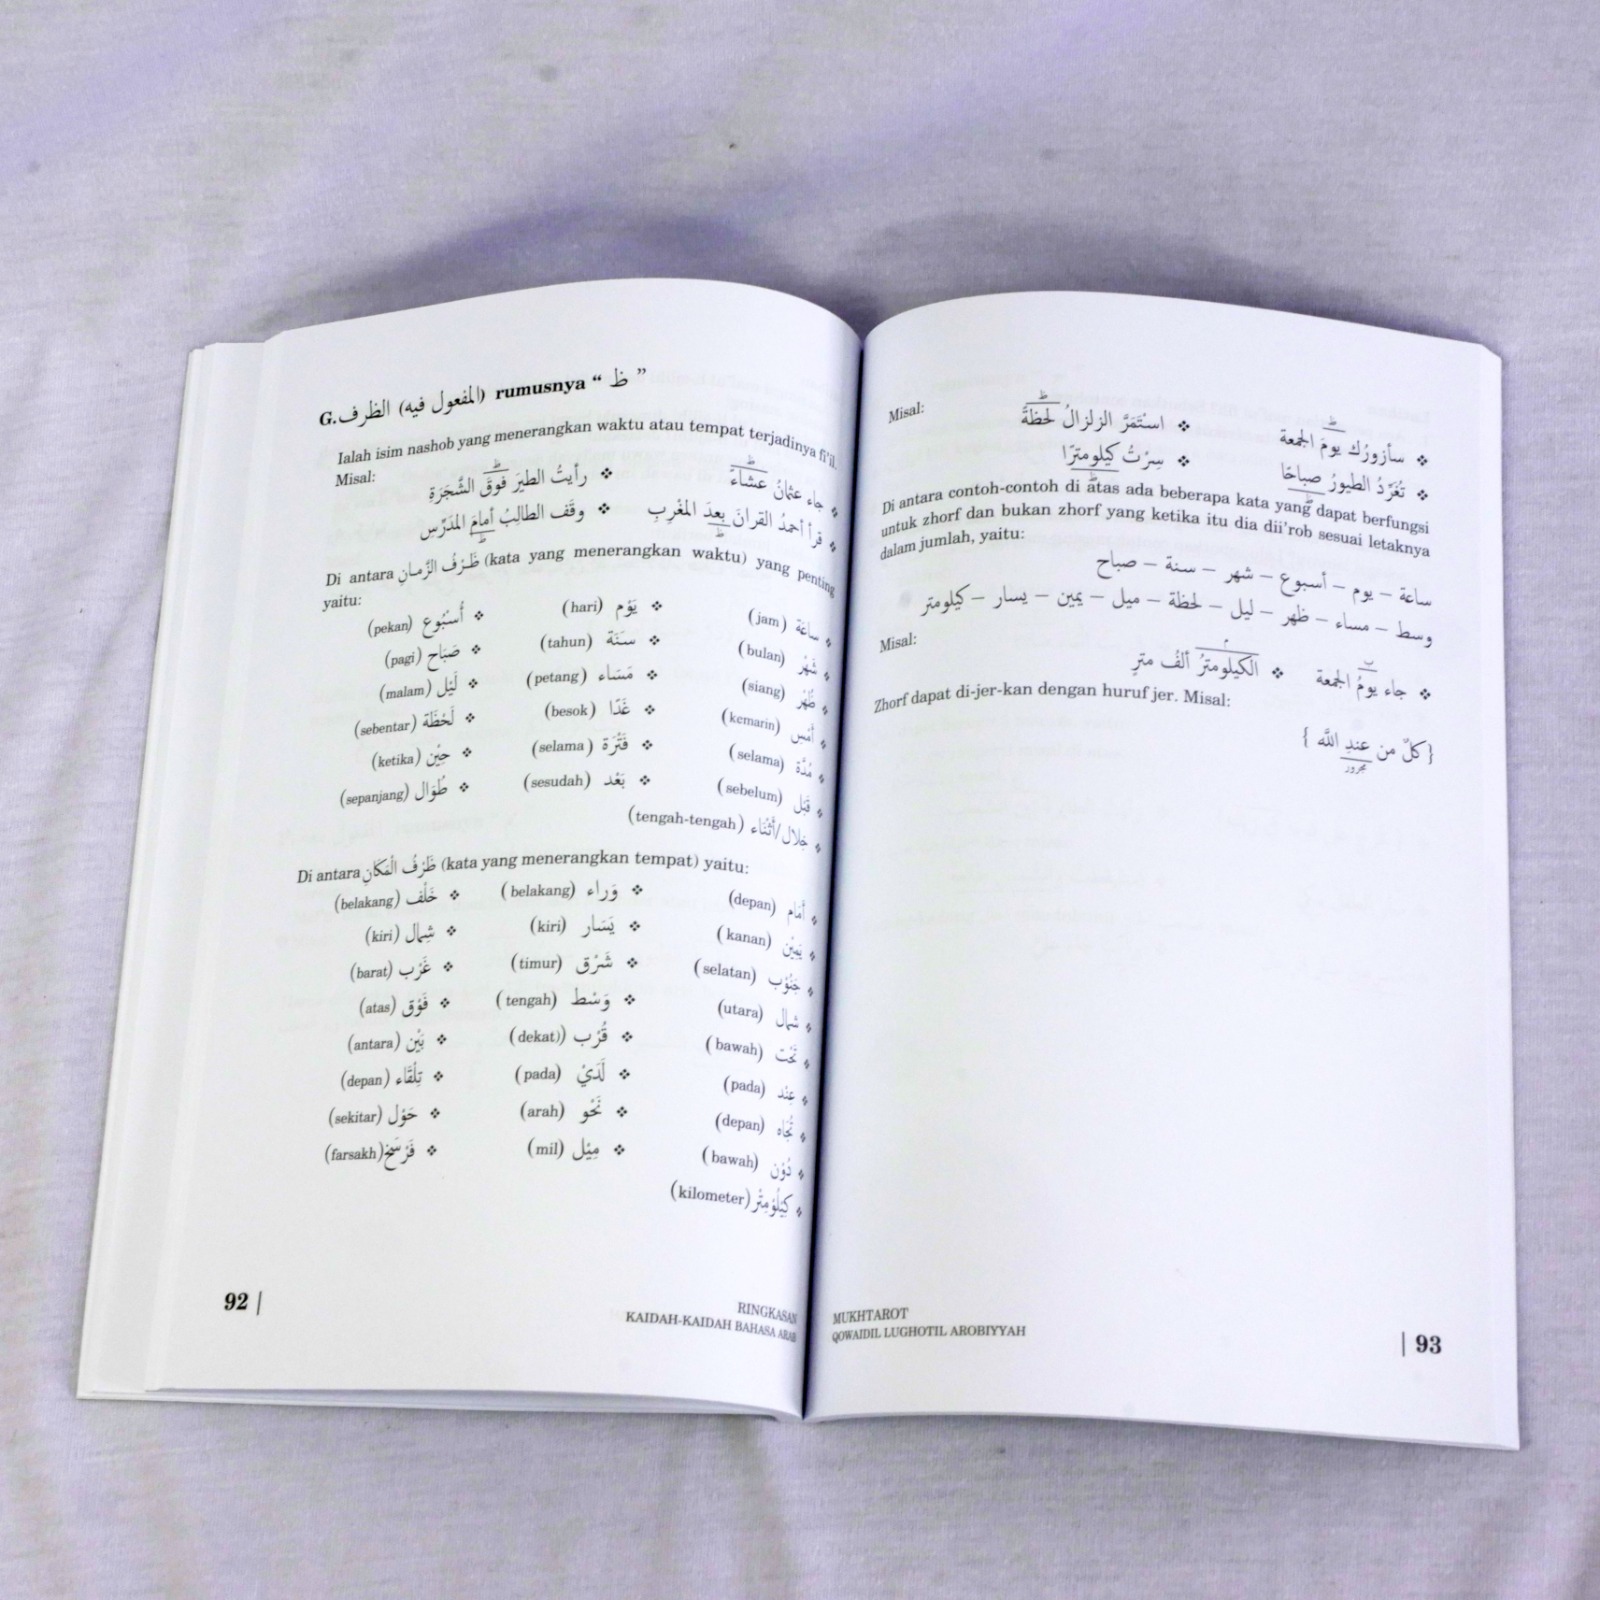 G. الظرف (المفعول فيه) rumusnya “ ظ ”
Ialah isim nashob yang menerangkan waktu atau tempat terjadinya fi'il.
Misal:
❖ جاء عثمانُ عشاءً ❖ رأيتُ الطيرَ فوقَ الشَّجَرَةِ
ظ ظ
❖ قرأ أحمدُ القرانَ بعدَ المغْرِبِ ❖ وقَف الطالِبُ أمامَ المدَرِّسِ
ظ ظ
Di antara ظَرْفُ الزَّمانِ (kata yang menerangkan waktu) yang penting
yaitu:
❖ ساعَة (jam) ❖ يَوْم (hari) ❖ أُسْبُوع (pekan)
❖ شَهْر (bulan) ❖ سَنَة (tahun) ❖ صَبَاح (pagi)
❖ ظُهْر (siang) ❖ مَسَاء (petang) ❖ لَيْل (malam)
❖ أمْسِ (kemarin) ❖ غَدًا (besok) ❖ لَحْظَة (sebentar)
❖ مُدَّة (selama) ❖ فَتْرَة (selama) ❖ حِيْن (ketika)
❖ قَبْل (sebelum) ❖ بَعْد (sesudah) ❖ طُوَال (sepanjang)
❖ خِلال/أَثْنَاء (tengah-tengah)
Di antara ظَرْفُ الْمَكَانِ (kata yang menerangkan tempat) yaitu:
❖ أَمَام (depan) ❖ وَراء (belakang) ❖ خَلْف (belakang)
❖ يَمِيْن (kanan) ❖ يَسَار (kiri) ❖ شِمال (kiri)
❖ جَنُوْب (selatan) ❖ شَرْق (timur) ❖ غَرْب (barat)
❖ شمال (utara) ❖ وَسْط (tengah) ❖ فَوْق (atas)
❖ تَحْت (bawah) ❖ قُرْب (dekat)) ❖ بَيْن (antara)
❖ عِنْد (pada) ❖ لَدَيْ (pada) ❖ تِلْقَاء (depan)
❖ تُجَاه (depan) ❖ نَحْو (arah) ❖ حَوْل (sekitar)
❖ دُوْن (bawah) ❖ مِيْل (mil) ❖ فَرْسَخ (farsakh)
❖ كِيْلُوْمِتْر (kilometer)
92 |
RINGKASAN
KAIDAH-KAIDAH BAHASA ARAB
Misal:
❖ سأزورُك يومَ الجمعة ❖ اسْتَمَرَّ الزلزالُ لحْظةً
ظ ظ
❖ تُغَرِّدُ الطيورُ صباحًا ❖ سِرْتُ كيلومترًا
ظ ظ
Di antara contoh-contoh di atas ada beberapa kata yang dapat berfungsi
untuk zhorf dan bukan zhorf yang ketika itu dia dii'rob sesuai letaknya
dalam jumlah, yaitu:
ساعة – يوم – أسبوع – شهر – سنة – صباح
وسط – مساء – ظهر – ليل – لحظة – ميل – يمين – يسار – كيلومتر
Misal:
❖ جاء يومُ الجمعة ❖ الكيلومترُ ألفُ مترٍ
Zhorf dapat di-jer-kan dengan huruf jer. Misal:
{كلٌّ من عندِ الله }
مجرور
MUKHTAROT
QOWAIDIL LUGHOTIL AROBIYYAH
| 93